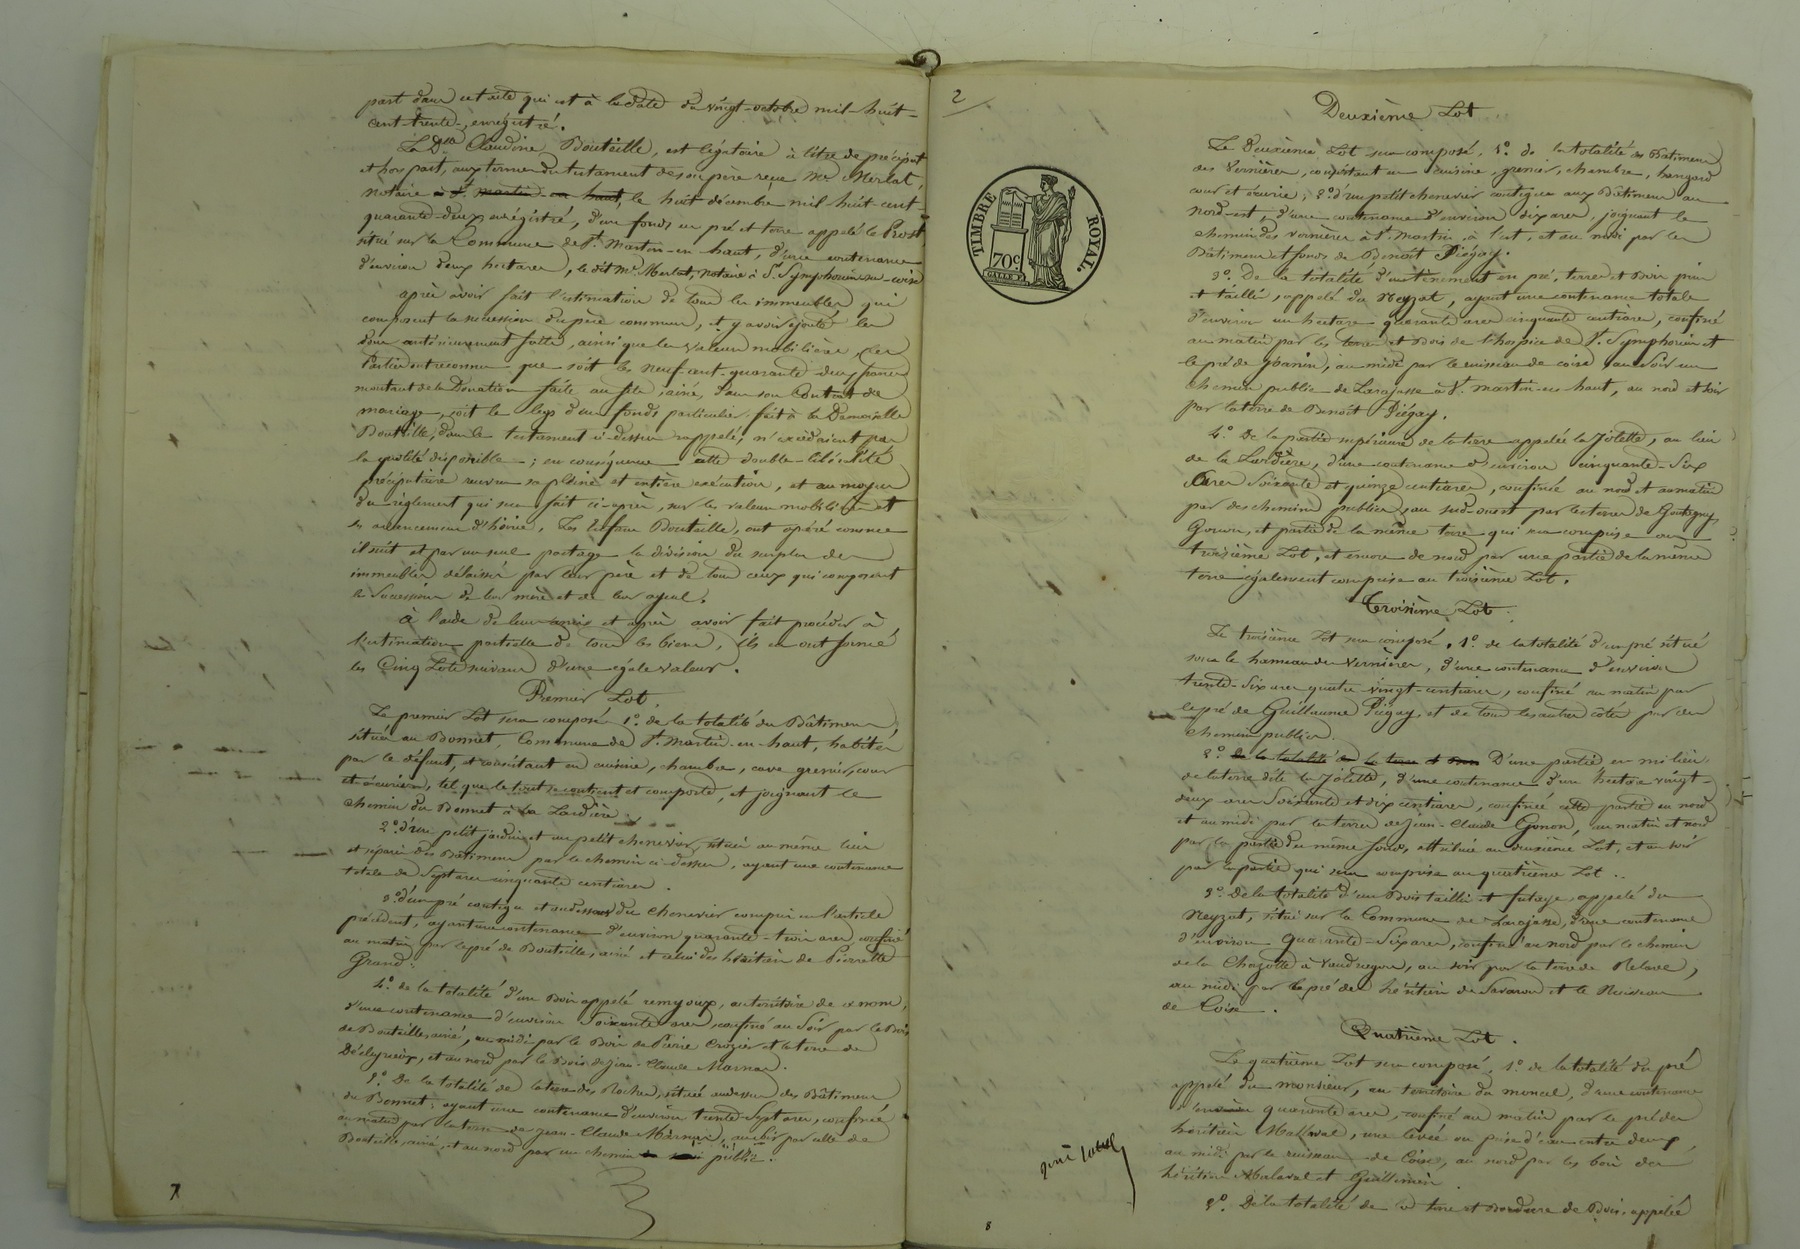 part dans cet acte qui est à la date du vingt-octobre mil-huit-
cent-trente, enregistré.
La Dlle Claudine Bouteille, est légataire à titre de préciput
et hors part, aux termes du testament de son père reçu Me Merlat,
notaire à St martin en haut, le huit décembre mil huit-cent-
quarante-deux enregistré, d'un fonds en pré et terre appelé le Prost,
situé sur la Commune de St Martin-en-haut, d'une contenance
d'environ deux hectares, le dit Me Merlat, notaire à St Symphorien sur coise
après avoir fait l'estimation de tous les immeubles qui
composent la succession du père commun, et y avoir ajouté les
dons antérieurement faits, ainsi que les valeurs mobilières, les
Parties ont reconnu que soit les neuf-cent-quarante-deux francs
montant de la Donation faite au fils ainé, dans son Contrat de
mariage, soit le legs d'un fonds particulier fait à la Demoiselle
Bouteille, dans le testament ci-dessus rappelé, n'excédaient pas
la quotité disponible ; en conséquence cette double-libéralité
précipitaire recevra sa pleine et entière exécution, et au moyen
du règlement qui sera fait ci-après, sur les valeurs mobilières et
les avancements d'hoirie, Les Enfans Bouteille, ont opéré comme
il suit et par un seul partage la division du surplus des
immeubles délaissés par leur père et de tous ceux qui composent
la Succession de leur mère et de leur ayeul.
à l'aide de leurs amis et après avoir fait procéder à
l'estimation partielle de tous les biens, ils en ont formé
les Cinq Lots suivans d'une égale valeur.
Premier Lot.
Le premier Lot sera composé 1o. de la totalité des Bâtimens,
situés au Bonnet, Commune de St Martin-en-haut, habités
par le défunt, et consistant en cuisine, chambre, cave grenier, cour
et écuries, tel que le tout se contient et comporte, et joignant le
chemin du Bonnet à La Lardière.
2o. d'un petit jardin et un petit chenevier, situés au même lieu
et séparés des Bâtimens par le chemin ci-dessus, ayant une contenance
totale de Sept ares cinquante centiares.
3o. d'un pré contigu et au dessous du Chenevier compris en l'article
précédent, ayant une contenance d'environ quarante-trois ares, confiné
au matin par le pré de Bouteille, ainé et celui des héritiers de Pierrette
Grand.
4o. de la totalité d'un Bois appelé remyoux, au territoire de ce nom,
d'une contenance d'environ Soixante ares, confiné au Soir par le Bois
de Bouteille ainé, au midi par le Bois de Pierre Crozier et la terre de
, et au nord par le Bois de Jean-Claude Marnas.
5o. De la totalité de la terre des Roches, située au dessus des Bâtimens
du Bonnet, ayant une contenance d'environ trente-Sept ares, confinée
au matin par la terre de Jean-Claude Marnas, au soir par celle de
Bouteille, ainé, et au nord par un chemin public.
7
2
TIMBRE ROYAL.
70c
Deuxième Lot
Le Deuxième Lot sera composé, 1o. de la totalité des Bâtimens
des Vernières, consistant en cuisine, grenier, chambre, hangard
cour et écurie ; 2o. d'un petit chenevier contigu aux Bâtimens au
nord-est, d'une contenance d'environ dix ares, joignant le
chemin des vernières à St Martin, à l'est, et au midi par les
Bâtimens et fonds de Benoît Piégay.
3o. De la totalité d'un tènement en pré, terres et Bois pins
et taillis, appelé du Neyzat, ayant une contenance totale
d'environ un hectare quarante ares cinquante centiares, confiné
au matin par les terres et Bois de l'hospice de St Symphorien et
le pré de Joannin, au midi par le ruisseau de coise au soir un
Chemin public de Larajasse à St martin-en haut, au nord et soir
par la terre de Benoît Piégay.
4o. De la partie supérieure de la terre appelée la Jolette, au lieu
de la Lardière, d'une contenance d'environ cinquante-Six
Ares Soixante et quinze centiares, confinée au nord et au matin
par des chemins publics, au sud-ouest par les terres de
Gonon, et partie de la même terre qui sera comprise au
troisième Lot, et encore de nord par une partie de la même
terre également comprise au troisième Lot.
Troisième Lot.
Le troisième Lot sera composé, 1o. de la totalité d'un pré situé
sous le hameau des Vernières, d'une contenance d'environ
trente-Six ares quatre-vingt-centiares, confiné au matin par
le pré de Guillaume Piégay, et de tous les autres côtés par des
chemins publics.
2o. de la totalité de la terre et D'une partie en milieu
de la terre dite la Jolette, d'une contenance d'un hectare vingt-
deux ares Soixante et dix centiares, confinée cette partie au nord
et au midi par les terres de Jean-Claude Gonon, au matin et nord
par la partie du même fonds, attribuée au deuxième Lot, et au soir
par la partie qui sera comprise au quatrième Lot.
3o. De la totalité d'un Bois taillis et futaye, appelé du
Neyzat, situé sur la Commune de Larajasse, d'une contenance
d'environ Quarante-Six ares, confiné au nord par le chemin
de la Chazotte à , au soir par la terre de Relave,
au midi par le pré des héritiers de et le Ruisseau
de Coise.
Quatrième Lot.
Le quatrième Lot sera composé, 1o. de la totalité du pré
appelé du monsieur, au territoire du moncel, d'une contenance
d'environ quarante ares, confiné au matin par le pré des
héritiers Mallaval, une levée ou prise d'eau entre deux,
au midi par le ruisseau de Coise, au nord par les bois des
héritiers Malaval et Guillemin.
2o. De la totalité de terre et Bordure de Bois, appelée
8